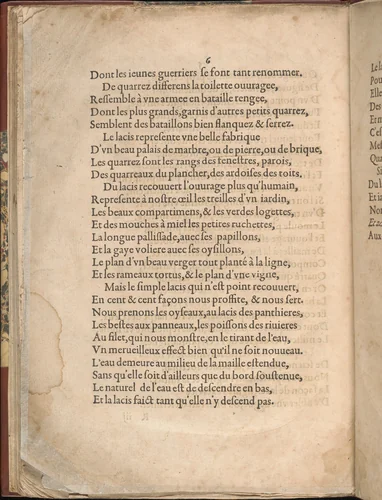 6
Dont les ieunes guerriers se font tant renommer.
De quarrez differens la toilette ouuragee,
Ressemble à vne armee en bataille rengee,
Dont les plus grands, garnis d'autres petits quarrez,
Semblent des bataillons bien flanquez & serrez.
Le lacis represente vne belle fabrique
D'vn beau palais de marbre, ou de pierre, ou de brique,
Les quarrez sont les rangs des fenestres, parois,
Des quarreaux du plancher, des ardoises des toits.
Du lacis recouuert l'ouurage plus qu'humain,
Represente à nostre œil les treilles d'vn iardin,
Les beaux compartimens, & les verdes logettes,
Et des mouches à miel les petites ruchettes,
La longue pallissade, auec ses papillons,
Et la gaye voliere auec ses oysillons,
Le plan d'vn beau verger tout planté à la ligne,
Et ses rameaux tortus, & le plan d'vne vigne,
Mais le simple lacis qui n'est point recouuert,
En cent & cent façons nous proffite, & nous sert.
Nous prenons les oyseaux, au lacis des panthieres,
Les bestes aux panneaux, les poissons des riuieres
Au filet, qui nous monstre, en le tirant de l'eau,
Vn merueilleux effect bien qu'il ne soit nouueau.
L'eau demeure au milieu de la maille estendue,
Sans qu'elle soit d'ailleurs que du bord soustenue,
Le naturel de l'eau est de descendre en bas,
Et la lacis faict tant qu'elle n'y descend pas.